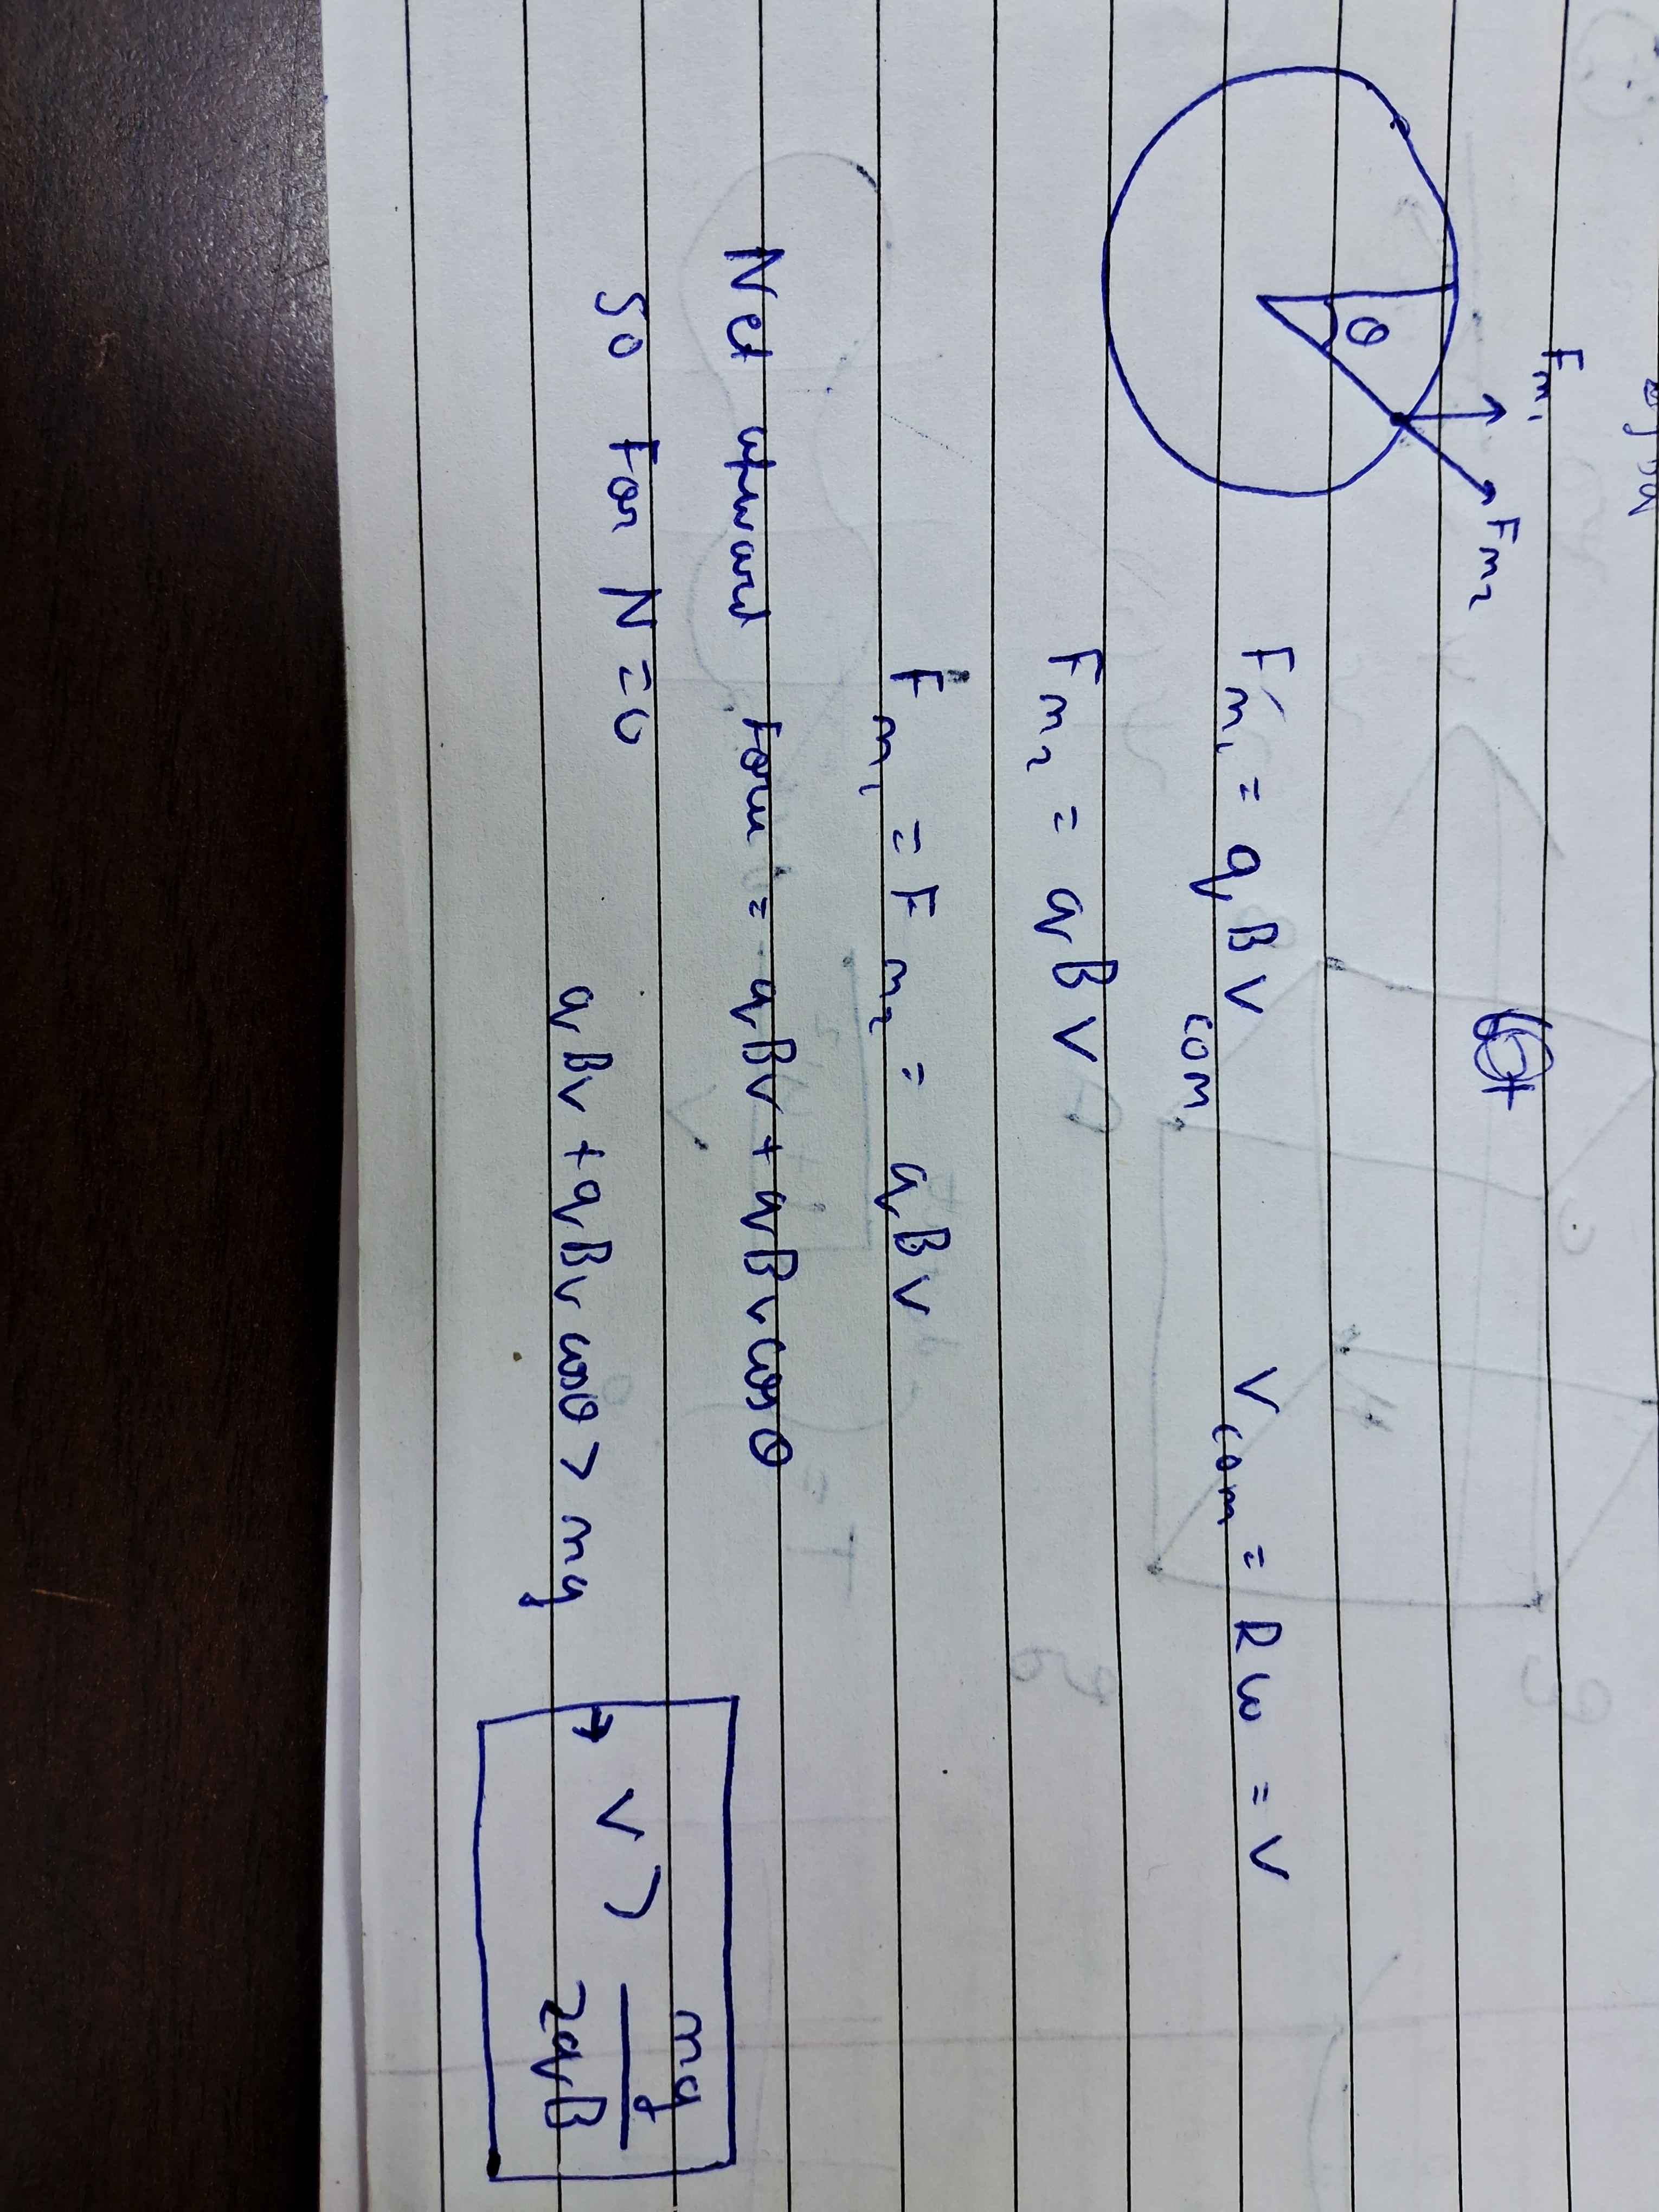 F_{m_1}
F_{m_2}
θ
F_{m_1} = qBV_{com} V_{com} = Rω = V
F_{m_2} = qBV
F_{m_1} = F_{m_2} = qBV
Net upward force = qBv + qBvcosθ
so For N = 0
qBv + qBv cosθ > mg
→ V > mg/2qB